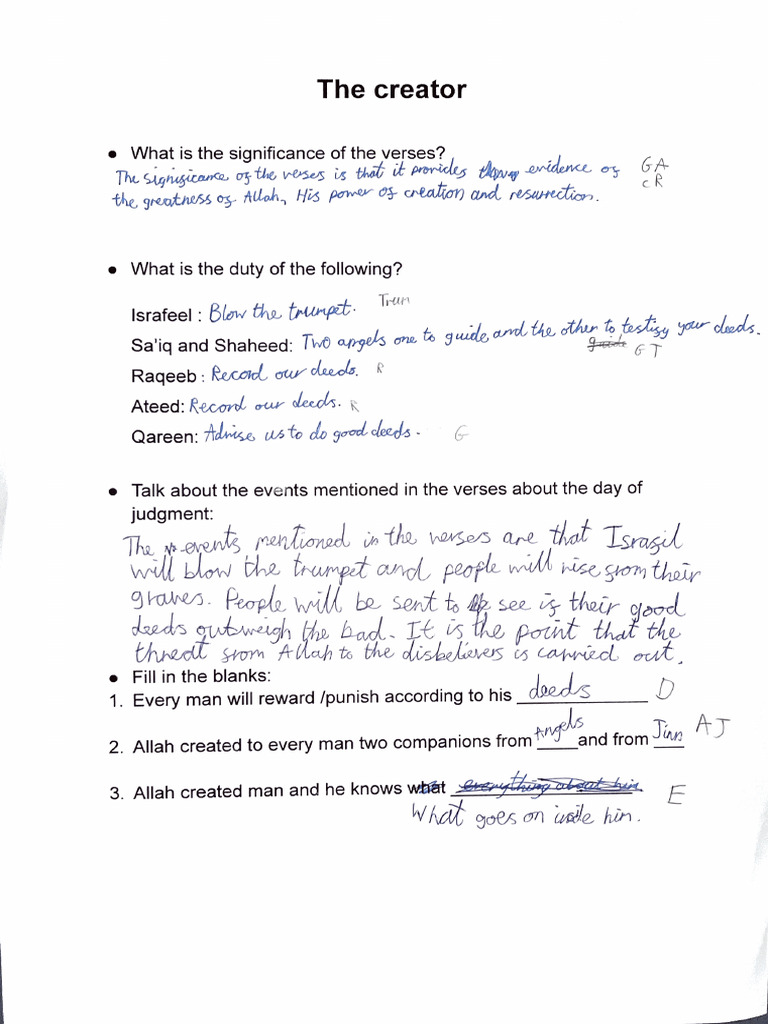 The creator
● What is the significance of the verses?
The significance of the verses is that it provides evidence of GA
the greatness of Allah, His power of creation and resurrection. CR
● What is the duty of the following?
Israfeel : Blow the trumpet. Trum
Sa'iq and Shaheed: Two angels one to guide and the other to testify your deeds.
guide GT
Raqeeb : Record our deeds. R
Ateed: Record our deeds. R
Qareen: Advise us to do good deeds. G
● Talk about the events mentioned in the verses about the day of
judgment:
The events mentioned in the verses are that Israfil
will blow the trumpet and people will rise from their
graves. People will be sent to see if their good
deeds outweigh the bad. It is the point that the
threat from Allah to the disbelievers is carried out.
● Fill in the blanks:
1. Every man will reward /punish according to his deeds D
2. Allah created to every man two companions from Angels and from Jinn AJ
3. Allah created man and he knows what everything about him. E
What goes on inside him.